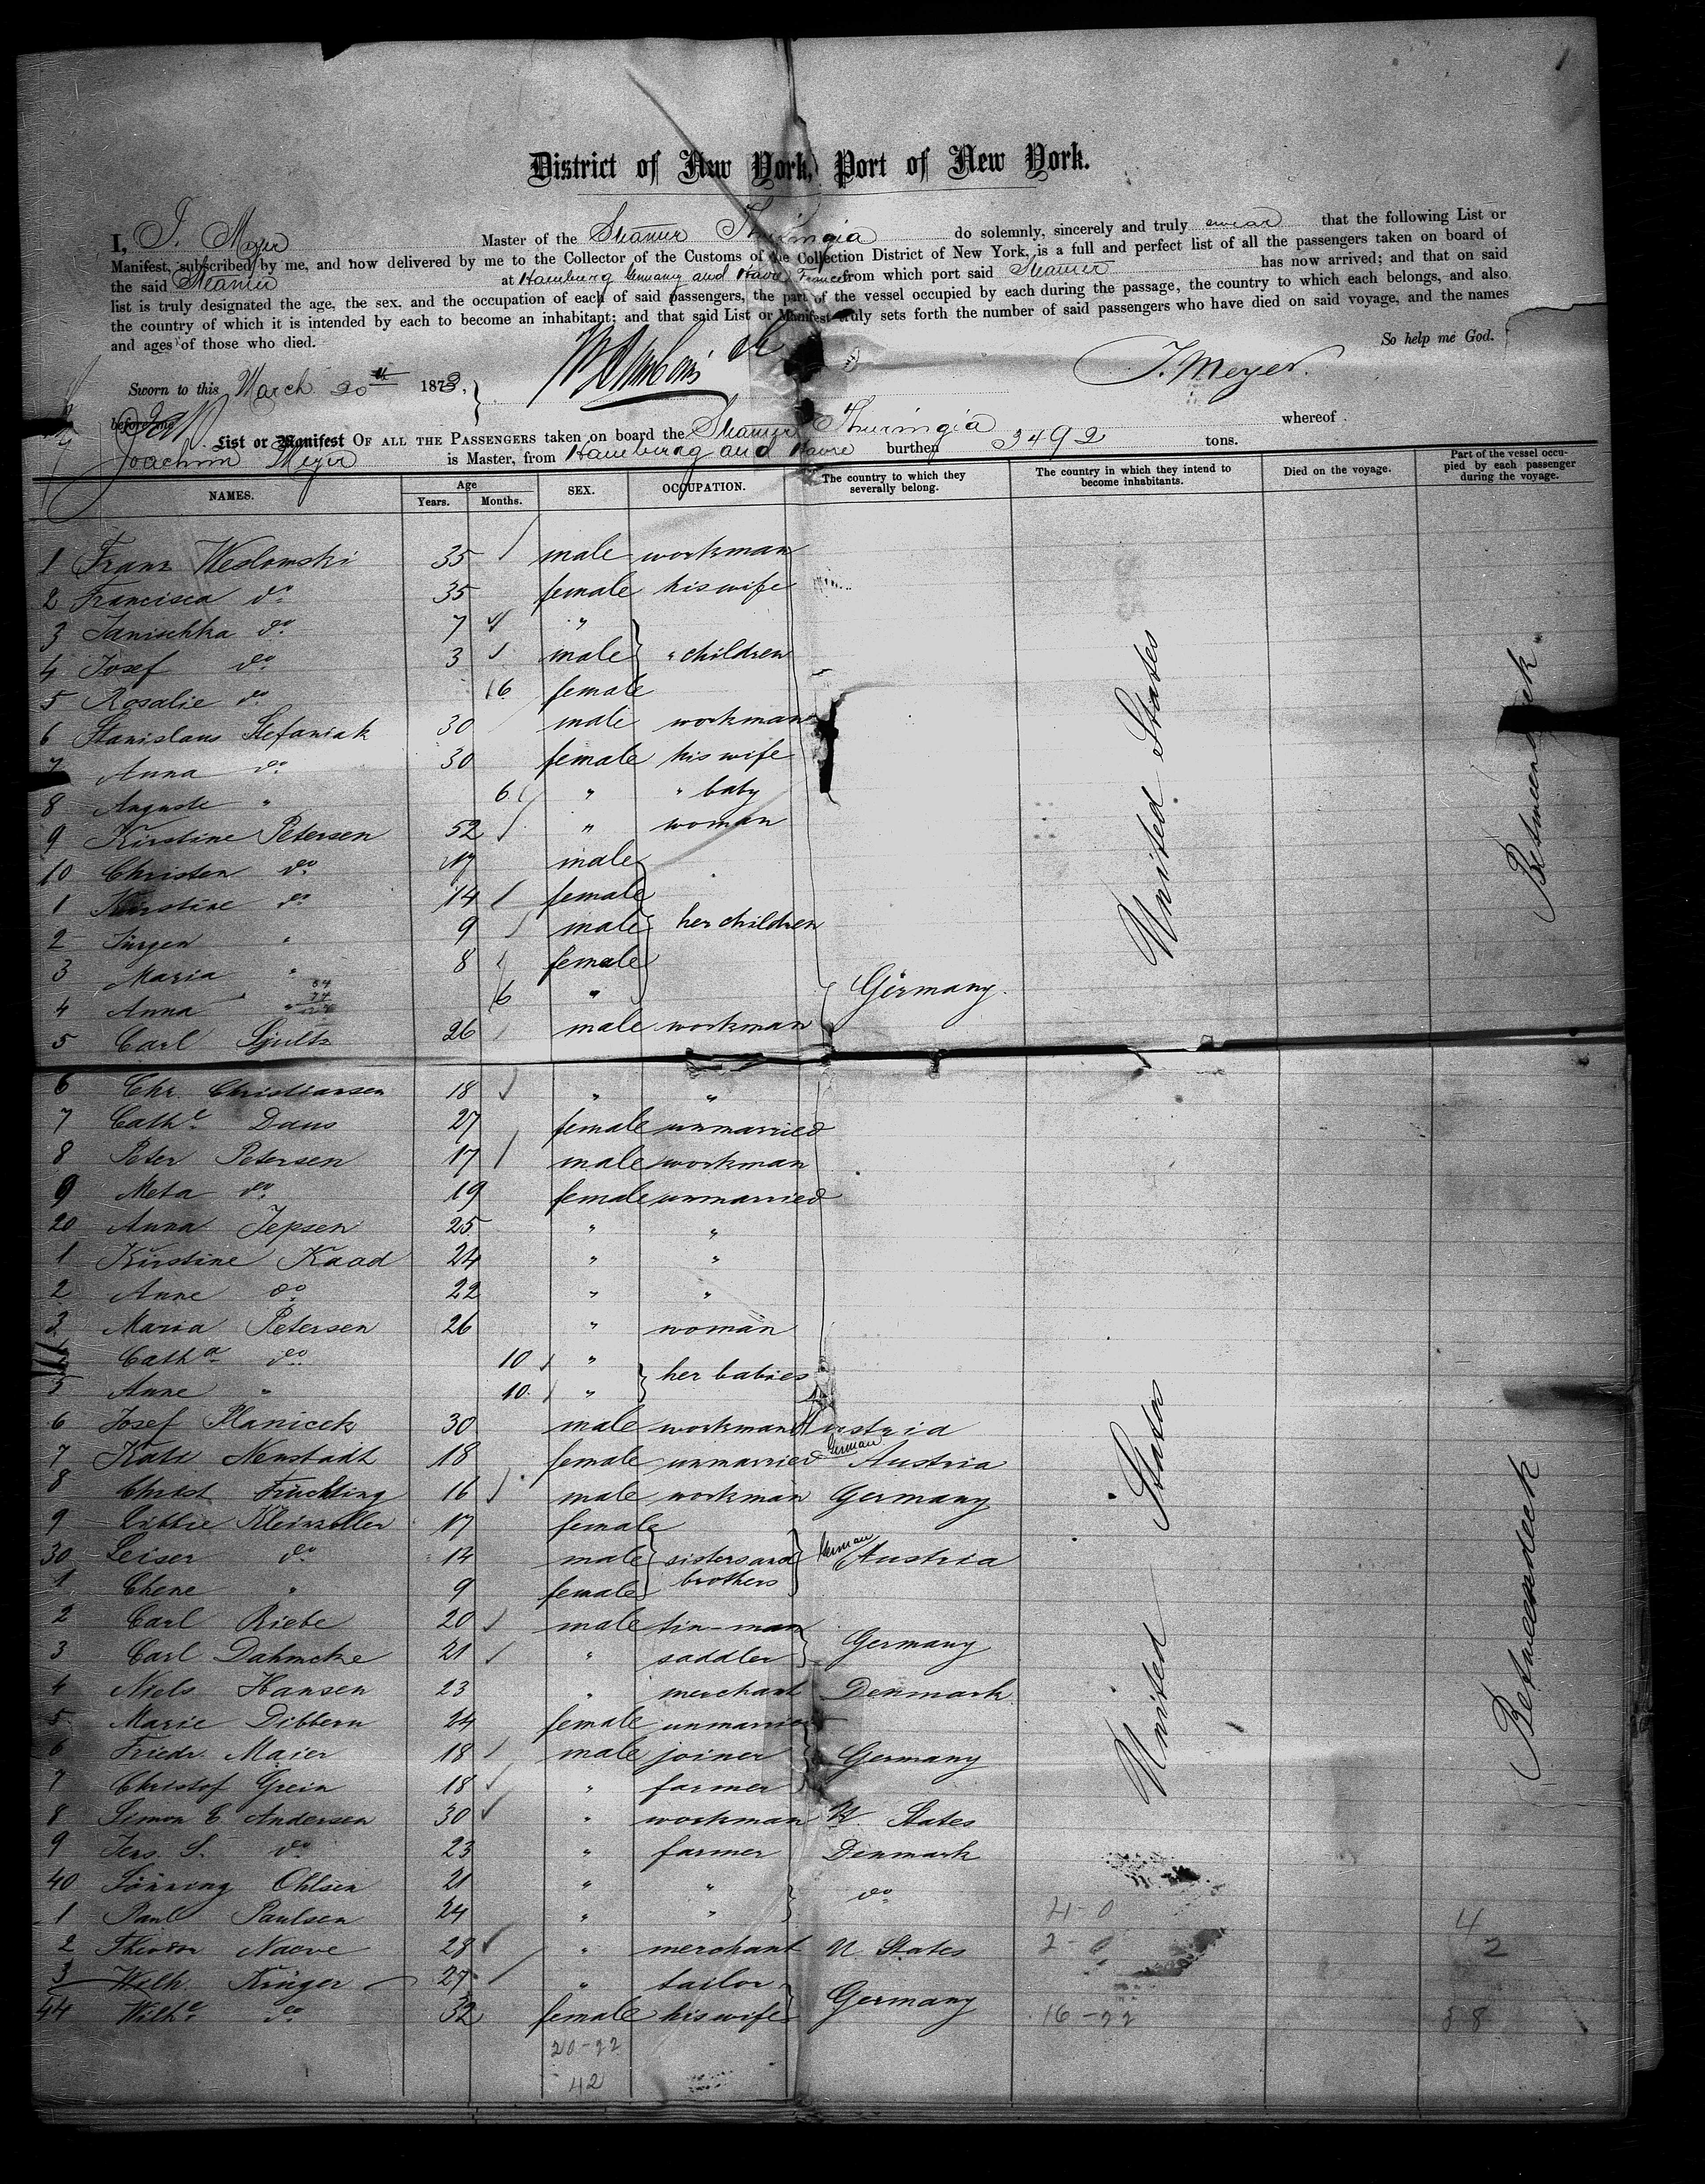 District of New York, Port of New York.
I, J. Meyer Master of the Steamer Thuringia do solemnly, sincerely and truly swear that the following List or
Manifest, subscribed by me, and now delivered by me to the Collector of the Customs of the Collection District of New York, is a full and perfect list of all the passengers taken on board of
the said Steamer at Hamburg Germany and Havre France from which port said Steamer has now arrived; and that on said
list is truly designated the age, the sex, and the occupation of each of said passengers, the part of the vessel occupied by each during the passage, the country to which each belongs, and also
the country of which it is intended by each to become an inhabitant; and that said List or Manifest truly sets forth the number of said passengers who have died on said voyage, and the names
and ages of those who died. So help me God.
Sworn to this March 20th 1873, J. Meyer.
before me
List or Manifest OF ALL THE PASSENGERS taken on board the Steamer Thuringia whereof
Joachim Meyer is Master, from Hamburg and Havre burthen 3492 tons.
NAMES. Age Years. Months. SEX. OCCUPATION. The country to which they severally belong. The country in which they intend to become inhabitants. Died on the voyage. Part of the vessel occupied by each passenger during the voyage.
1 Franz Weslomski 35 male workman
2 Francisca do 35 female his wife
3 Janischka do 7 "
4 Josef do 3 male " children
5 Rosalie do 6 female
6 Stanislaus Stefaniak 30 male workman
7 Anna do 30 female his wife
8 Auguste " 6 " " baby
9 Kirstine Petersen 52 " woman
10 Christen do 17 male
1 Kirstine do 14 female
2 Jürgen " 9 male her children
3 Maria " 8 female
4 Anna " 6 " Germany
5 Carl Sjults 26 male workman
United States
Betweendeck
6 Chr. Christiansen 18 " "
7 Cathe Daus 27 female unmarried
8 Peter Petersen 17 male workman
9 Meta do 19 female unmarried
20 Anna Jepsen 25 " "
1 Kirstine Kaad 24 " "
2 Anne do 22 " "
3 Maria Petersen 26 " woman
Catha do 10 " her babies
5 Anne " 10 "
6 Josef Planicek 30 male workman Austria
7 Kate Neustadt 18 female unmarried German Austria
8 Christ Früchting 16 male workman Germany
9 Libbie Kleinzoller 17 female
30 Leiser do 14 male sisters and brothers German Austria
1 Chene " 9 female
2 Carl Riebe 20 male tin-man
3 Carl Dahmcke 21 " saddler Germany
4 Niels Hansen 23 " merchant Denmark
5 Marie Dibbern 24 female unmarried
6 Friedr. Maier 18 male joiner Germany
7 Christof Grein 18 " farmer
8 Simon C Andersen 30 " workman U. States
9 Jens. S. do 23 " farmer Denmark
40 Sönning Ohlsen 21 " " do
1 Paul Paulsen 24 " " 4-0 4
2 Theodor Naeve 28 " merchant U States 2-0 2
3 Wilh. Krüger 27 " tailor
44 Wilhe do 32 female his wife Germany 16-22 38
United States
Betweendeck
20-22
42